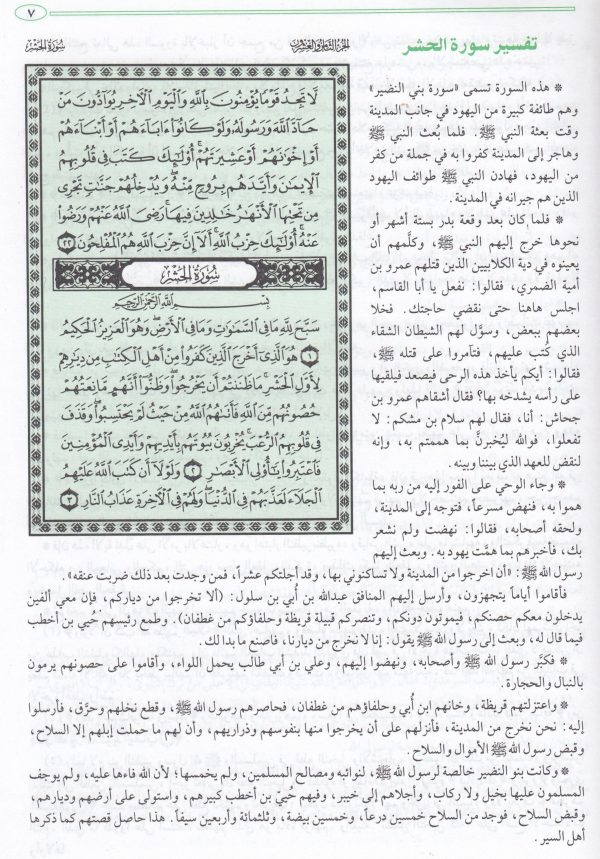 ٧
سورة الحشر
الجزء الثامن والعشرون
تفسير سورة الحشر
لَّا تَجِدُ قَوْمًا يُؤْمِنُونَ بِٱللَّهِ وَٱلْيَوْمِ ٱلْأَخِرِ يُوَآدُّونَ مَنْ
حَآدَّ ٱللَّهَ وَرَسُولَهُۥ وَلَوْ كَانُوٓا۟ ءَابَآءَهُمْ أَوْ أَبْنَآءَهُمْ
أَوْ إِخْوَٰنَهُمْ أَوْ عَشِيرَتَهُمْ ۚ أُو۟لَٰٓئِكَ كَتَبَ فِى قُلُوبِهِمُ
ٱلْإِيمَٰنَ وَأَيَّدَهُم بِرُوحٍ مِّنْهُ ۖ وَيُدْخِلُهُمْ جَنَّٰتٍ تَجْرِى
مِن تَحْتِهَا ٱلْأَنْهَٰرُ خَٰلِدِينَ فِيهَا ۚ رَضِىَ ٱللَّهُ عَنْهُمْ وَرَضُوا۟
عَنْهُ ۚ أُو۟لَٰٓئِكَ حِزْبُ ٱللَّهِ ۚ أَلَآ إِنَّ حِزْبَ ٱللَّهِ هُمُ ٱلْمُفْلِحُونَ ٢٢
سُورَةُ الحَشْرِ
بِسْمِ ٱللَّهِ ٱلرَّحْمَٰنِ ٱلرَّحِيمِ
سَبَّحَ لِلَّهِ مَا فِى ٱلسَّمَٰوَٰتِ وَمَا فِى ٱلْأَرْضِ ۖ وَهُوَ ٱلْعَزِيزُ ٱلْحَكِيمُ
١ هُوَ ٱلَّذِىٓ أَخْرَجَ ٱلَّذِينَ كَفَرُوا۟ مِنْ أَهْلِ ٱلْكِتَٰبِ مِن دِيَٰرِهِمْ
لِأَوَّلِ ٱلْحَشْرِ ۚ مَا ظَنَنتُمْ أَن يَخْرُجُوا۟ ۖ وَظَنُّوٓا۟ أَنَّهُم مَّانِعَتُهُمْ
حُصُونُهُم مِّنَ ٱللَّهِ فَأَتَىٰهُمُ ٱللَّهُ مِنْ حَيْثُ لَمْ يَحْتَسِبُوا۟ ۖ وَقَذَفَ
فِى قُلُوبِهِمُ ٱلرُّعْبَ ۚ يُخْرِبُونَ بُيُوتَهُم بِأَيْدِيهِمْ وَأَيْدِى ٱلْمُؤْمِنِينَ
فَٱعْتَبِرُوا۟ يَٰٓأُو۟لِى ٱلْأَبْصَٰرِ ٢ وَلَوْلَآ أَن كَتَبَ ٱللَّهُ عَلَيْهِمُ
ٱلْجَلَآءَ لَعَذَّبَهُمْ فِى ٱلدُّنْيَا ۖ وَلَهُمْ فِى ٱلْأَخِرَةِ عَذَابُ ٱلنَّارِ ٣
* هذه السورة تسمى «سورة بني النضير»
وهم طائفة كبيرة من اليهود في جانب المدينة
وقت بعثة النبي ﷺ. فلما بُعث النبي ﷺ
وهاجر إلى المدينة كفروا به في جملة من كفر
من اليهود، فهادن النبي ﷺ طوائف اليهود
الذين هم جيرانه في المدينة.
* فلما كان بعد وقعة بدر بستة أشهر أو
نحوها خرج إليهم النبي ﷺ، وكلَّمهم أن
يعينوه في دية الكلابيين الذين قتلهم عمرو بن
أمية الضمري، فقالوا: نفعل يا أبا القاسم،
اجلس هاهنا حتى نقضي حاجتك. فخلا
بعضهم ببعض، وسوَّل لهم الشيطان الشقاء
الذي كتب عليهم، فتآمروا على قتله ﷺ،
فقالوا: أيكم يأخذ هذه الرحى فيصعد فيلقيها
على رأسه يشدخه بها؟ فقال أشقاهم عمرو بن
جحاش: أنا، فقال لهم سلام بن مشكم: لا
تفعلوا، فوالله ليُخبرنَّ بما هممتم به، وإنه
لنقض للعهد الذي بيننا وبينه.
* وجاء الوحي على الفور إليه من ربه بما
هموا به، فنهض مسرعاً، فتوجه إلى المدينة،
ولحقه أصحابه، فقالوا: نهضت ولم نشعر
بك، فأخبرهم بما همَّت يهود به. وبعث إليهم
رسول الله ﷺ: «أن اخرجوا من المدينة ولا تساكنوني بها، وقد أجلتكم عشراً، فمن وجدت بعد ذلك ضربت عنقه».
فأقاموا أياماً يتجهزون، وأرسل إليهم المنافق عبدالله بن أُبي بن سلول: (ألا تخرجوا من دياركم، فإن معي ألفين
يدخلون معكم حصنكم، فيموتون دونكم، وتنصركم قبيلة قريظة وحلفاؤكم من غطفان). وطمع رئيسهم حُيي بن أخطب
فيما قال له، وبعث إلى رسول الله ﷺ يقول: إنا لا نخرج من ديارنا، فاصنع ما بدا لك.
* فكبَّر رسول الله ﷺ وأصحابه، ونهضوا إليهم، وعلي بن أبي طالب يحمل اللواء، وأقاموا على حصونهم يرمون
بالنبال والحجارة.
* واعتزلتهم قريظة، وخانهم ابن أُبي وحلفاؤهم من غطفان، فحاصرهم رسول الله ﷺ، وقطع نخلهم وحرَّق، فأرسلوا
إليه: نحن نخرج من المدينة، فأنزلهم على أن يخرجوا منها بنفوسهم وذراريهم، وأن لهم ما حملت إبلهم إلا السلاح،
وقبض رسول الله ﷺ الأموال والسلاح.
* وكانت بنو النضير خالصة لرسول الله ﷺ، لنوائبه ومصالح المسلمين، ولم يخمسها؛ لأن الله فاءها عليه، ولم يوجف
المسلمون عليها بخيل ولا ركاب، وأجلاهم إلى خيبر، وفيهم حُييّ بن أخطب كبيرهم، واستولى على أرضهم وديارهم،
وقبض السلاح، فوجد من السلاح خمسين درعاً، وخمسين بيضة، وثلثمائة وأربعين سيفاً. هذا حاصل قصتهم كما ذكرها
أهل السير.